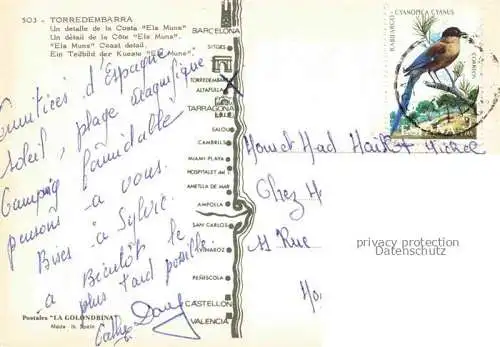 503 - TORREDEMBARRA
Un detalle de la Costa "Els Muns"
Un détail de la Côte "Els Muns".
"Els Muns" Coast detail.
Ein Teilbild der Kueste "Els Muns"
Amitiés d'Espagne
soleil, plage magnifique
Camping formidable
pensons à vous.
Bises à Sylvie.
A Bientôt le
plus tard possible.
Postales "LA GOLONDRINA"
Made in Spain
BARCELONA
SITGES
TORREDEMBARRA
ALTAFULLA
TARRAGONA
SALOU
CAMBRILS
MIAMI PLAYA
HOSPITALET del I.
AMETLLA DE MAR
AMPOLLA
SAN CARLOS
VINAROZ
PEÑISCOLA
CASTELLON
VALENCIA
RABILARGO
CYANOPICA CYANUS
CORREOS
Chez
Rue
privacy protection
Datenschutz